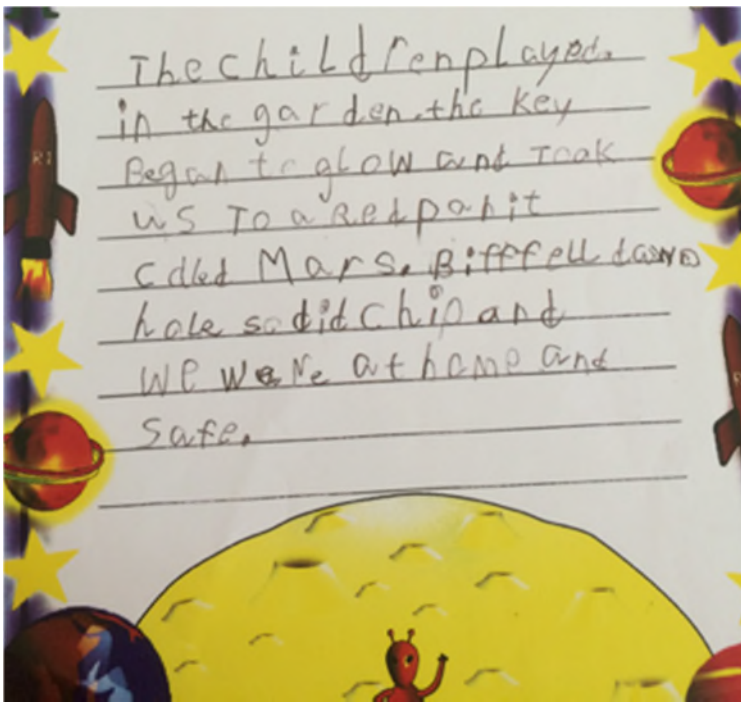 The children played.
in the garden. the key
Began to glow and Took
us To a Red panit
cdled Mars. Biff fell down
hole so did Chip and
we were at home and
safe.
R1